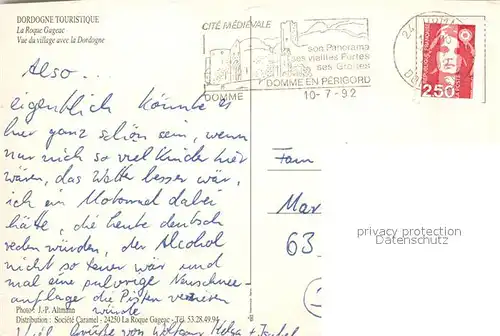 DORDOGNE TOURISTIQUE
La Roque Gageac
Vue du village avec la Dordogne
CITÉ MÉDIÉVALE
son Panorama
ses vieilles Portes
ses Grottes
DOMME EN PÉRIGORD
DOMME
10-7-92
24 DOMME
RÉPUBLIQUE FRANÇAISE
LA POSTE
2,50
Also...
eigentlich könnte es
hier ganz schön sein, wenn
nur nich so viel Kinder hier
wären, das Wetter besser wär,
ich ein Motorrad dabei
hätte, die Leute deutsch
reden würden, der Alcohol
nicht so teuer wär und
mal eine pulvrige Neuschnee-
auflage die Pisten verzieren
würde
Viel Grüße von Wolfgang Helga +
Fam
Mar
63
privacy protection
Datenschutz
Photo : J.-P. Altmann
Distribution : Société Caramel - 24250 La Roque Gageac - Tél. 53.28.49.94